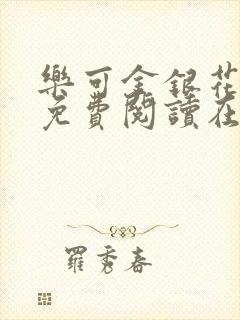 樂可金銀花
免費閱讀在
羅秀春